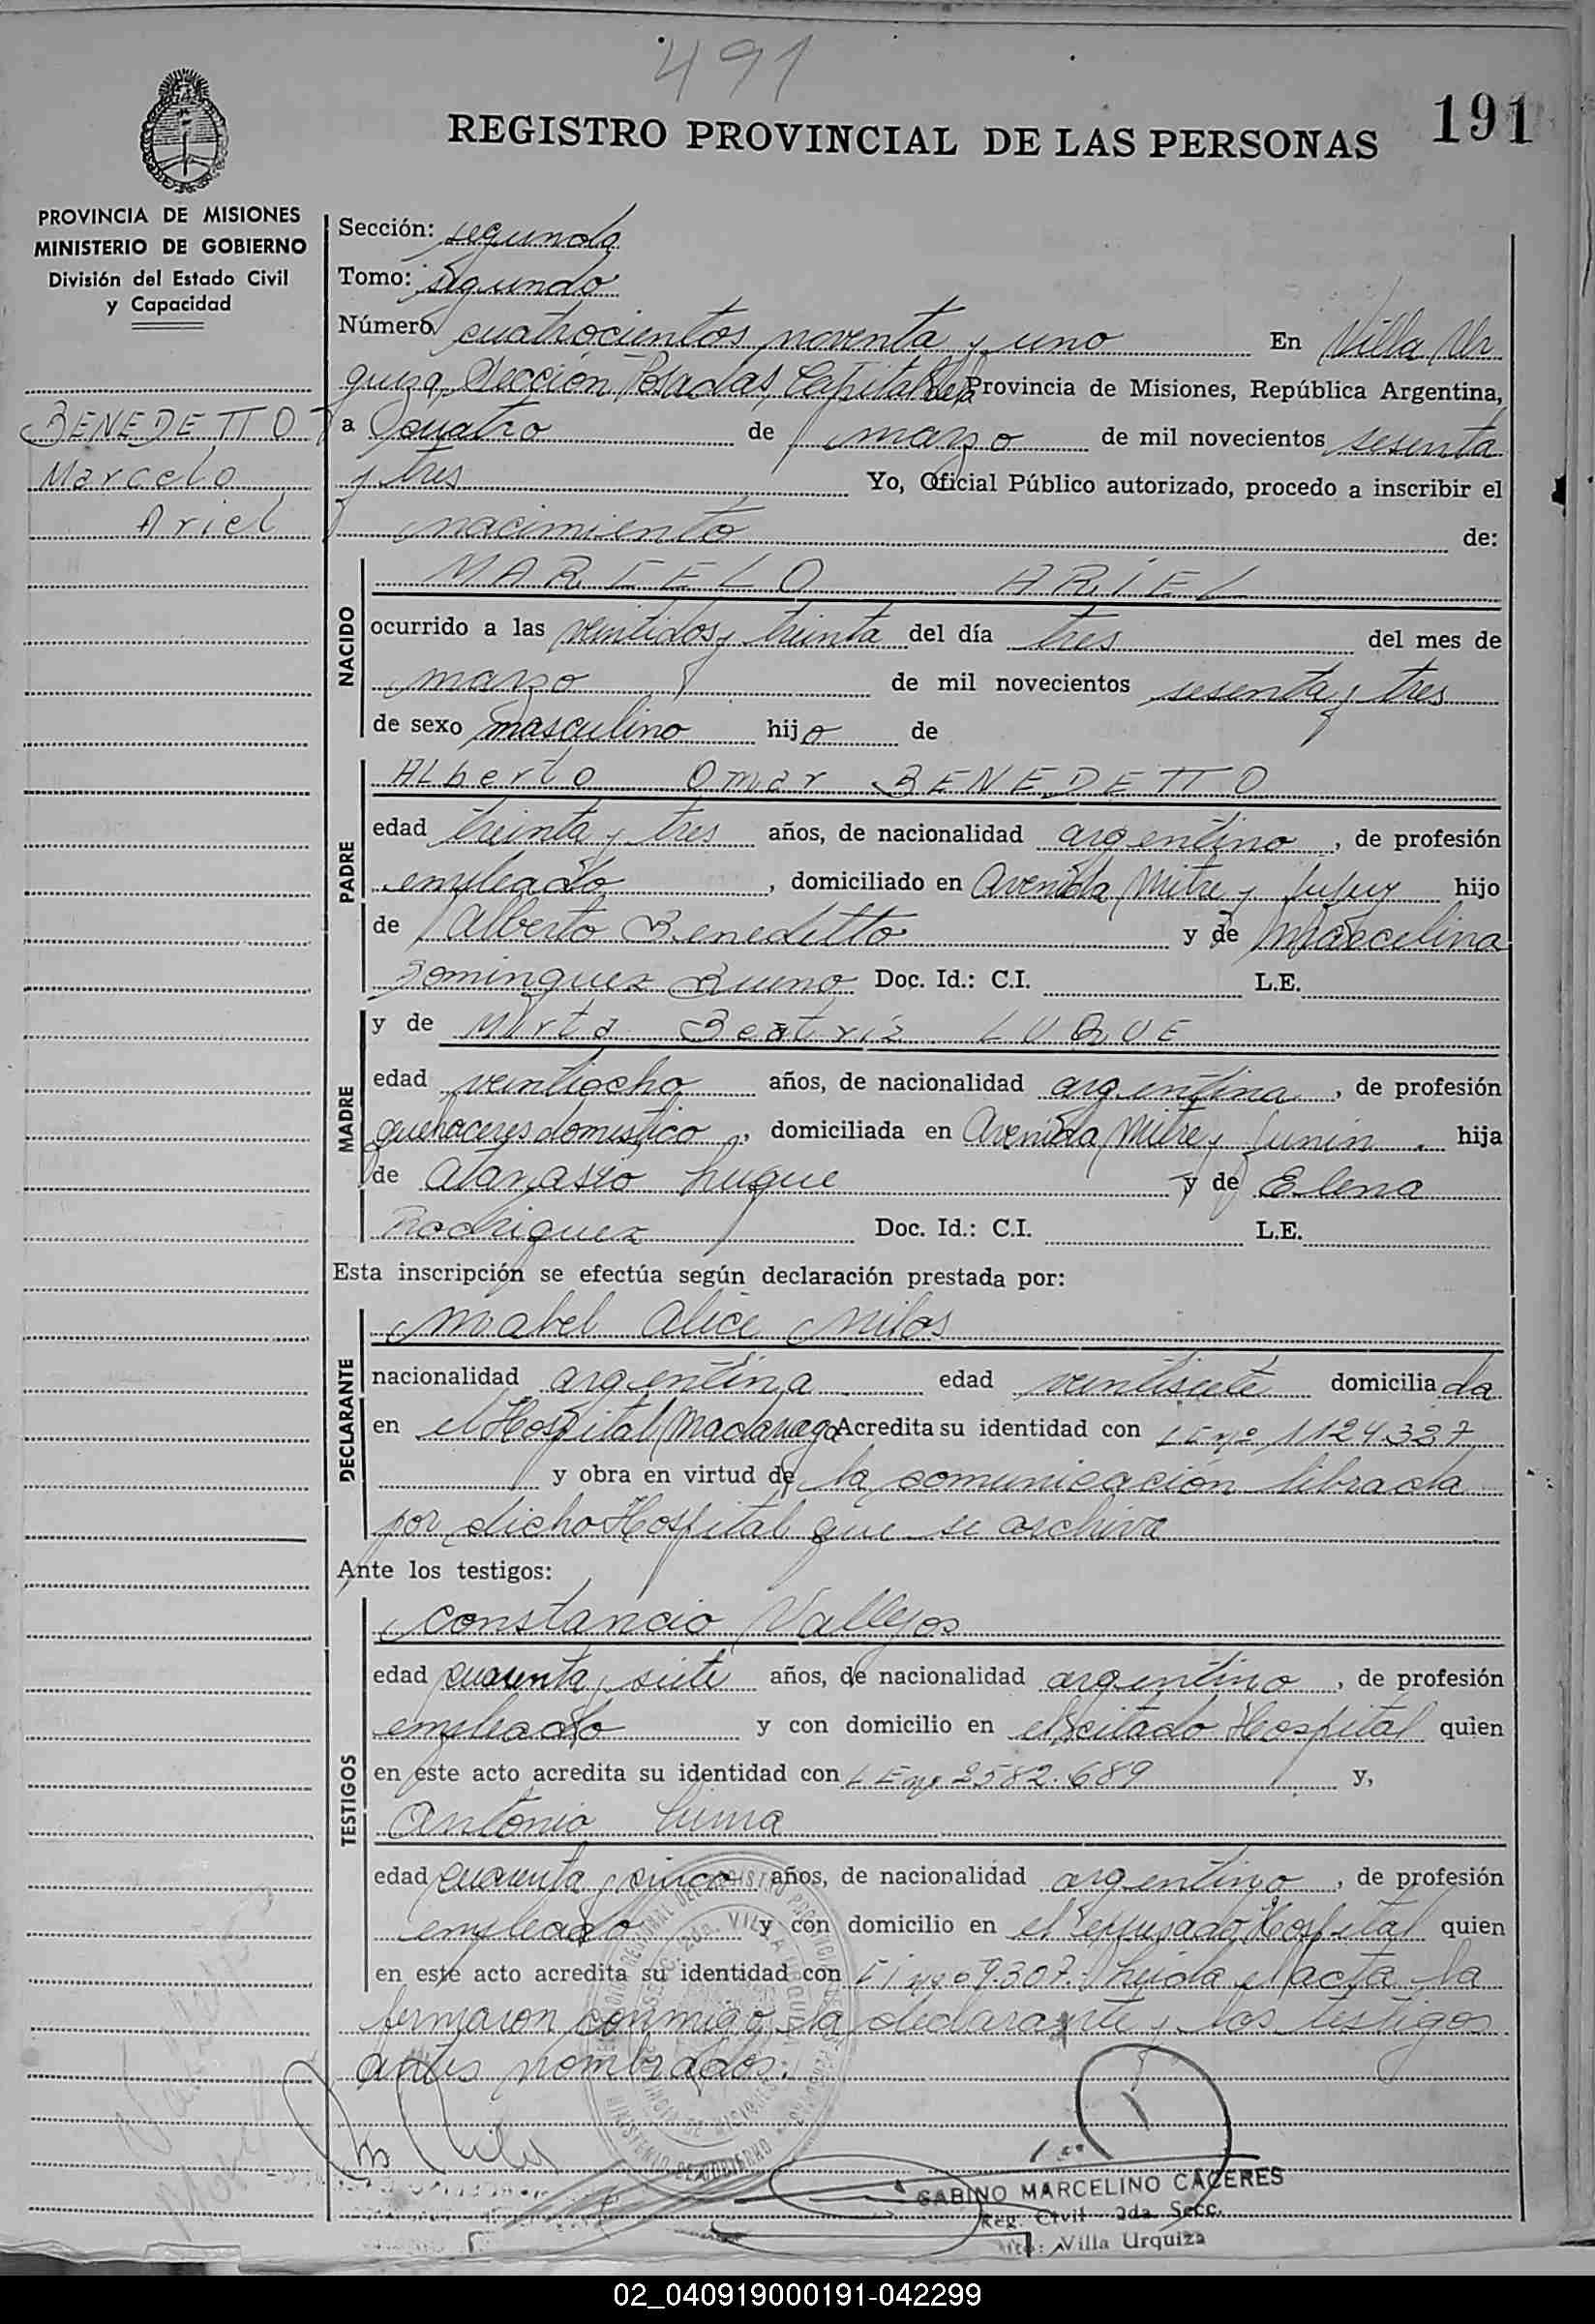 491
REGISTRO PROVINCIAL DE LAS PERSONAS 191
PROVINCIA DE MISIONES
MINISTERIO DE GOBIERNO
División del Estado Civil
y Capacidad
BENEDETTO
Marcelo
Ariel
Sección: segunda
Tomo: segundo
Número cuatrocientos noventa y uno En Villa Ur
quiza, Sección Posadas, Capital de la Provincia de Misiones, República Argentina,
a cuatro de marzo de mil novecientos sesenta
y tres Yo, Oficial Público autorizado, procedo a inscribir el
nacimiento de:
NACIDO
MARCELO ARIEL
ocurrido a las veintidos y treinta del día tres del mes de
marzo de mil novecientos sesenta y tres
de sexo masculino hijo de
PADRE
Alberto Omar BENEDETTO
edad treinta y tres años, de nacionalidad argentino, de profesión
empleado, domiciliado en Avenida Mitre y Jujuy hijo
de Alberto Benedetto y de Marcelina
Dominguez Bueno Doc. Id.: C.I. L.E.
MADRE
y de Mirta Beatriz LUQUE
edad veintiocho años, de nacionalidad argentina, de profesión
quehaceres domestico, domiciliada en Avenida Mitre y Junin. hija
de Atanasio Luque y de Elena
Rodriguez Doc. Id.: C.I. L.E.
Esta inscripción se efectúa según declaración prestada por:
DECLARANTE
Mabel Alice Milos
nacionalidad argentina edad veintisiete domiciliada
en el Hospital Madariaga Acredita su identidad con nº 1124.327
y obra en virtud de la comunicación librada
por dicho Hospital que se archiva
Ante los testigos:
TESTIGOS
Constancio Vallejos
edad cuarenta y siete años, de nacionalidad argentino, de profesión
empleado y con domicilio en el citado Hospital quien
en este acto acredita su identidad con L E nº 2582.689 y,
Antonio Luna
edad cuarenta y cinco años, de nacionalidad argentino, de profesión
empleado y con domicilio en el expresado Hospital quien
en este acto acredita su identidad con nº 9.307. Leida el acta la
firmaron conmigo la declarante y los testigos
antes nombrados.
SABINO MARCELINO CACERES
Reg. Civil 2da. Secc.
Villa Urquiza
02_040919000191-042299